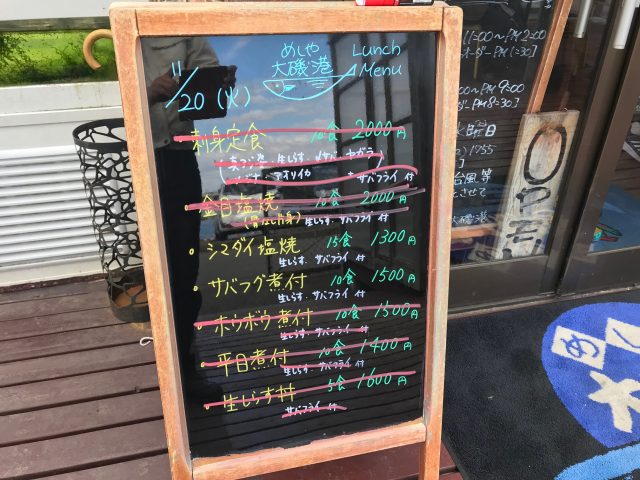 めしや
大磯港
Lunch
Menu
11/20(火)
・刺身定食 10食 2000円
生しらす
アオリイカ サバフライ 付
・金目塩焼 10食 2000円
生しらす、サバフライ 付
・シマダイ塩焼 15食 1300円
生しらす、サバフライ 付
・サバフグ煮付 10食 1500円
生しらす、サバフライ 付
・ホウボウ煮付 10食 1500円
生しらす、サバフライ 付
・平目煮付 10食 1400円
生しらす、サバフライ 付
・生しらす丼 5食 1600円
サバフライ 付
11:00〜PM 2:00
オーダー PM 1:30]
PM 9:00
PM 8:30]
1755
台風等
大磯港
めし